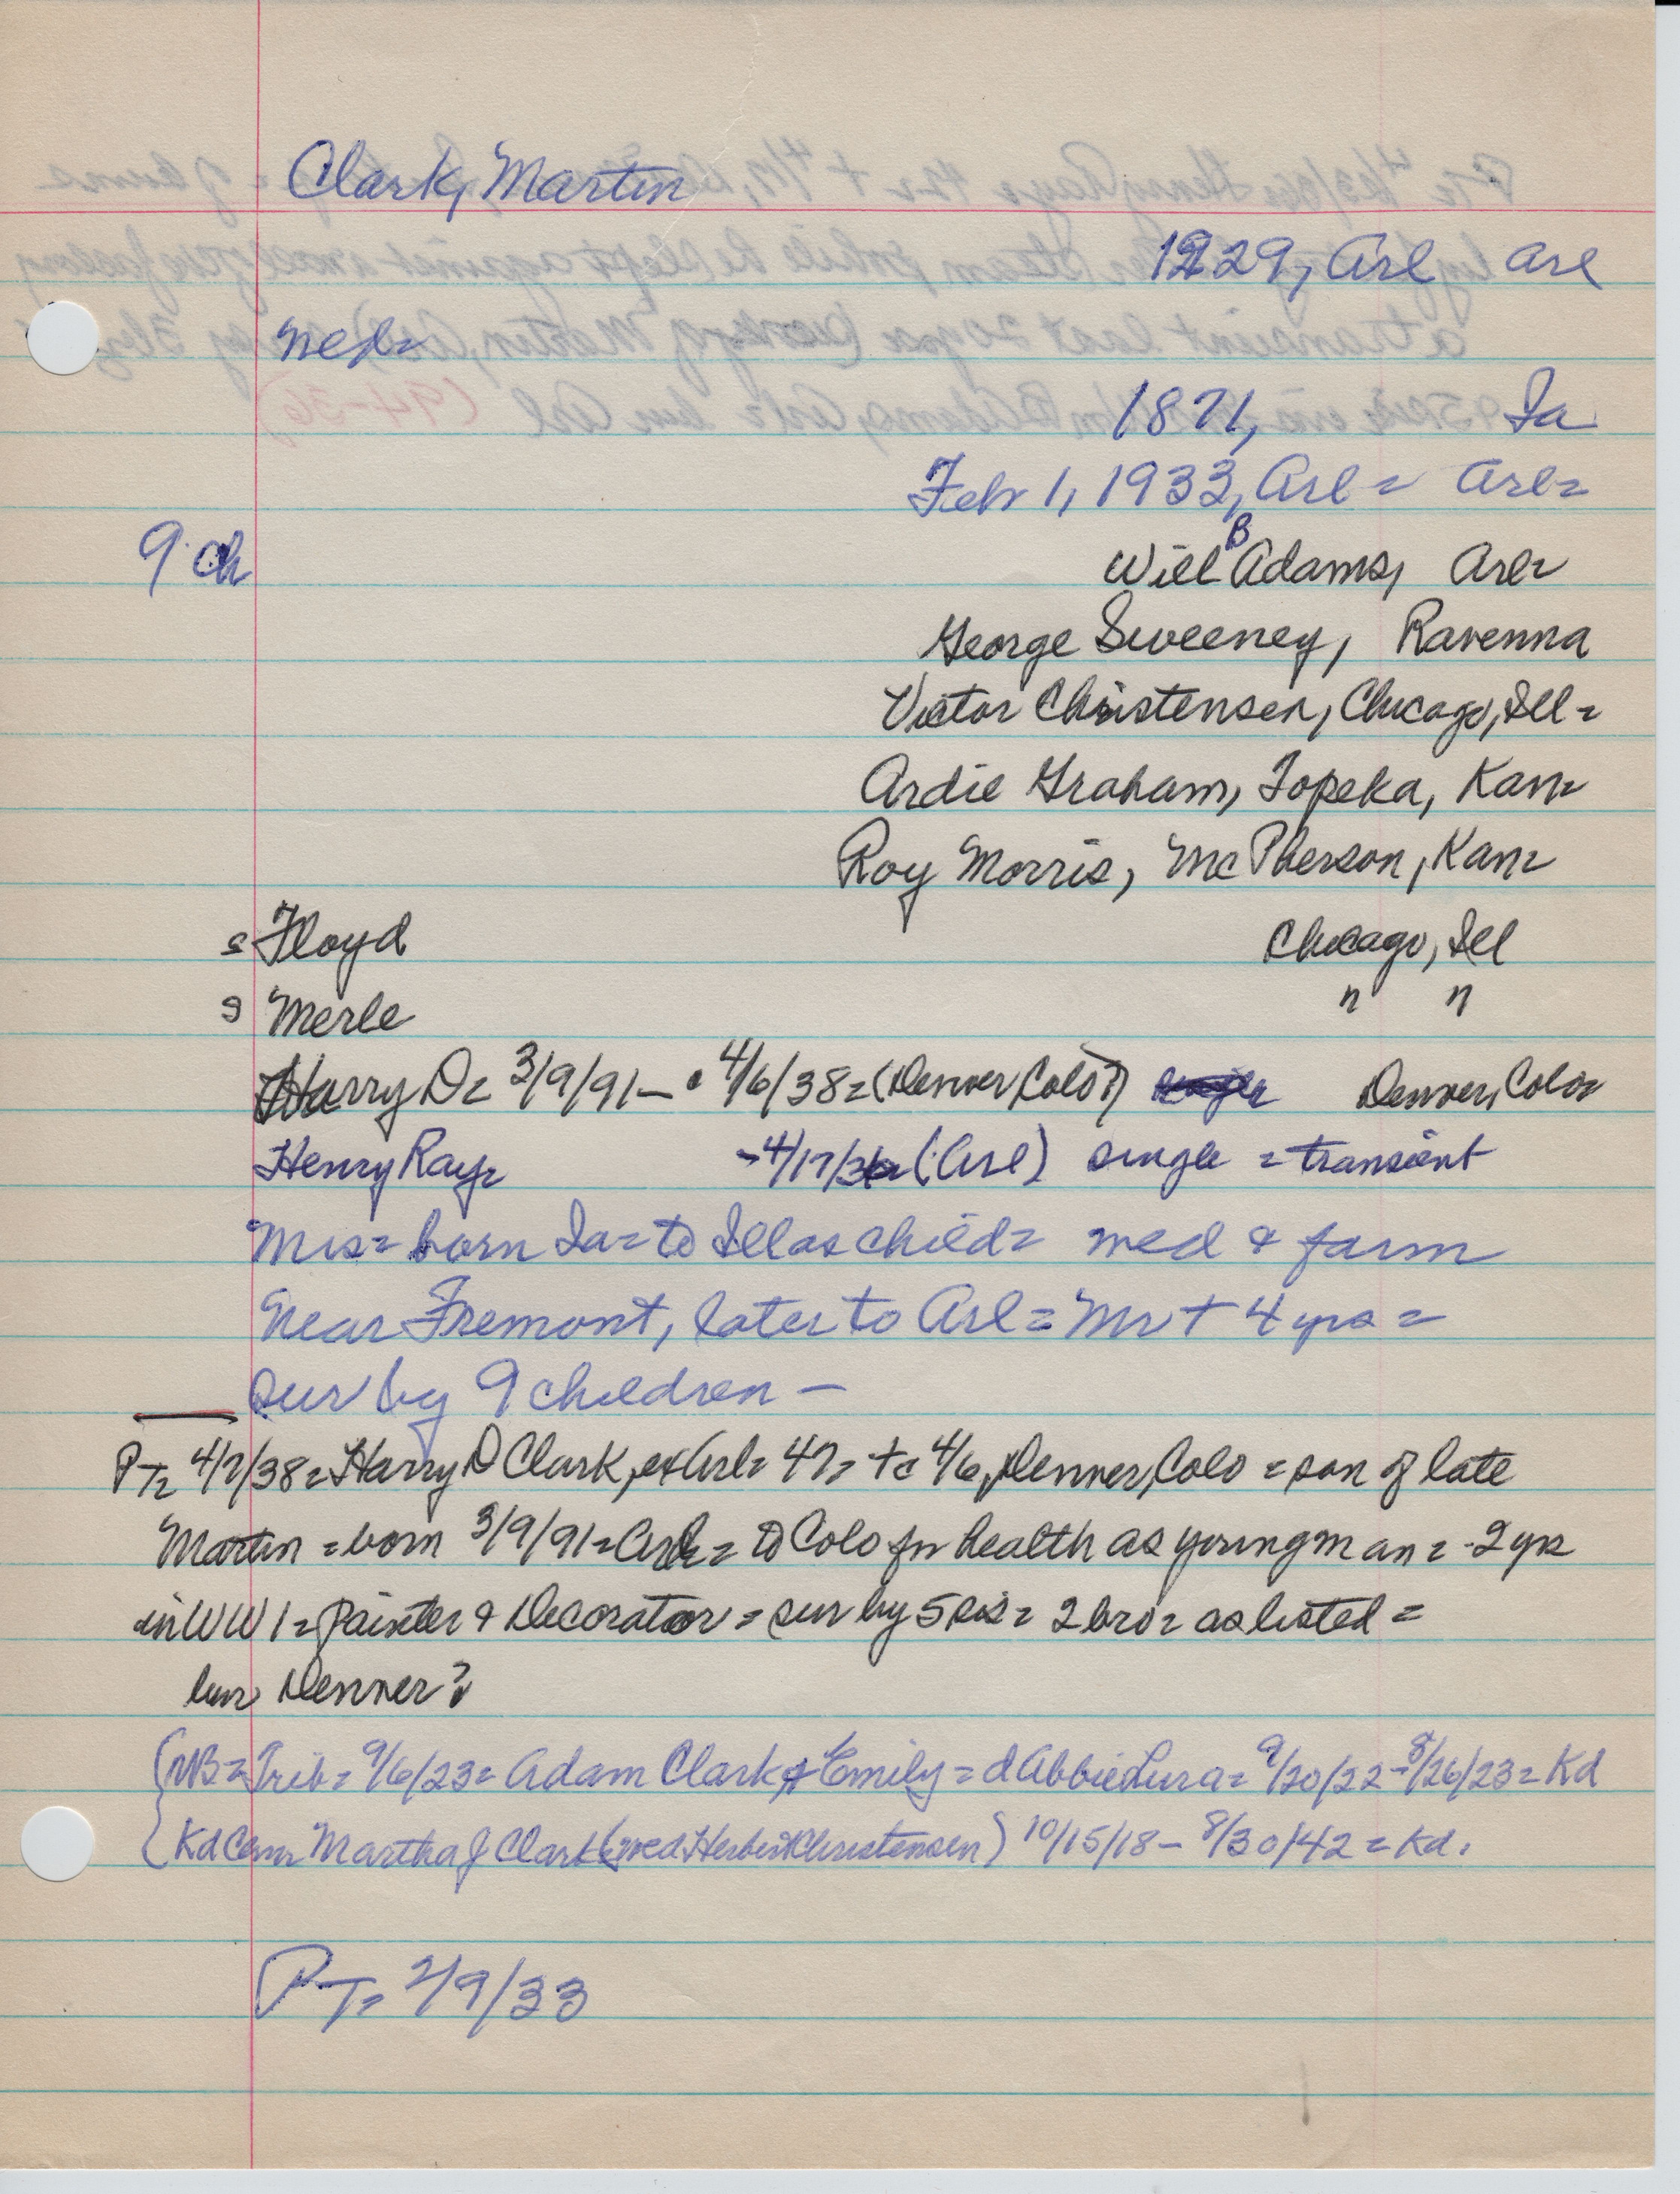 Clark, Martin
1929, Arl Arl
Med=
1871, Ia
Feb 1, 1933, Arl = Arl=
9 ch Will B Adams, Arl=
George Sweeney, Ravenna
Victor Christensen, Chicago, Ill =
Ardie Graham, Topeka, Kan=
Roy Morris, McPherson, Kan=
s Floyd Chicago, Ill
s Merle " "
Harry D= 3/9/91 - 4/6/38= (Denver, Colo?) Denver, Colo=
Henry Ray= -4/17/36 (Arl) single = transient
Mrs= born Ia= to Ill as child= med & farm
near Fremont, later to Arl = Mr + 4 yrs =
sur by 9 children -
PT= 4/7/38= Harry D Clark, ex Arl= 47= + 4/6, Denver, Colo = son of late
Martin = born 3/9/91= Arl= to Colo for health as young man = 2 yrs
in WW 1 = Painter & Decorator = sur by 5 sis= 2 bro= as listed =
bur Denver?
(NB= Trib= 9/6/23= Adam Clark & Emily = d Abbie Lura= 9/20/22 - 8/26/23= Kd
Kd Cem Martha J Clark (med Herbert Christensen) 10/15/18 - 8/30/42 = Kd.
PT= 2/9/33